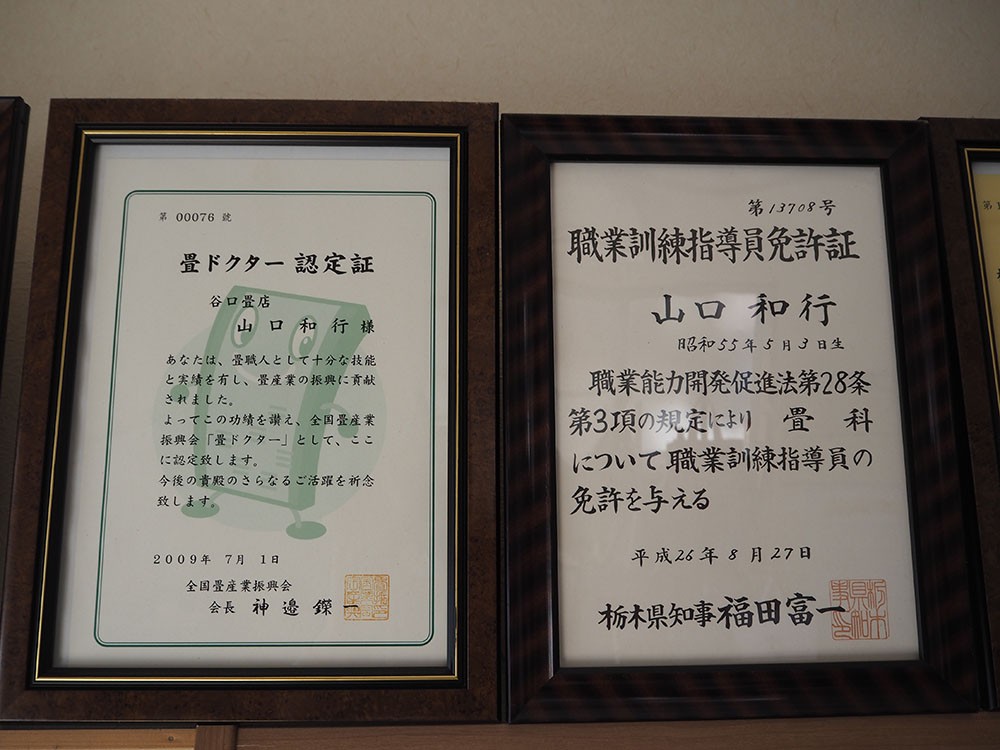 第 00076 號
畳ドクター 認定証
谷口畳店
山口和行様
あなたは、畳職人として十分な技能
と実績を有し、畳産業の振興に貢献
されました。
よってこの功績を讃え、全国畳産業
振興会「畳ドクター」として、ここ
に認定致します。
今後の貴殿のさらなるご活躍を祈念
致します。
2009年 7月 1日
全国畳産業振興会
会長 神邉鑠一
第13708号
職業訓練指導員免許証
山口 和行
昭和55年5月3日生
職業能力開発促進法第28条
第3項の規定により 畳 科
について職業訓練指導員の
免許を与える
平成26年8月27日
栃木県知事 福田富一
第